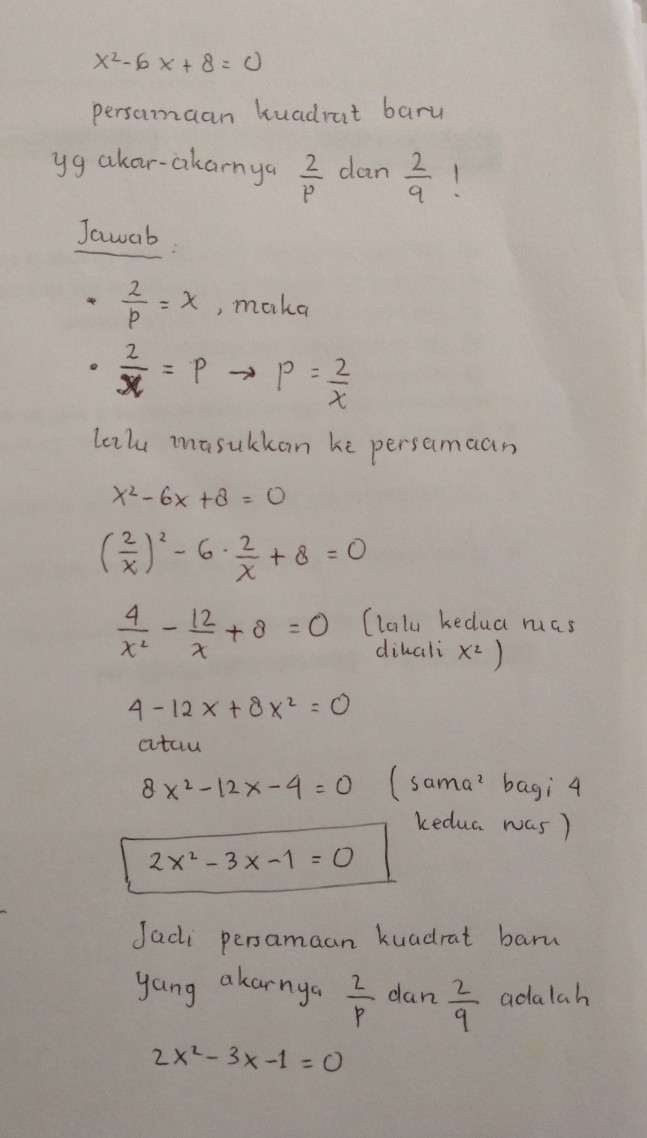 x² - 6x + 8 = 0
persamaan kuadrat baru
yg akar-akarnya 2/p dan 2/q !
Jawab :
• 2/p = x , maka
• 2/x = p → p = 2/x
lalu masukkan ke persamaan
x² - 6x + 8 = 0
(2/x)² - 6 · 2/x + 8 = 0
4/x² - 12/x + 8 = 0 (lalu kedua ruas
dikali x²)
4 - 12x + 8x² = 0
atau
8x² - 12x - 4 = 0 (sama² bagi 4
kedua ruas)
2x² - 3x - 1 = 0
Jadi persamaan kuadrat baru
yang akarnya 2/p dan 2/q adalah
2x² - 3x - 1 = 0